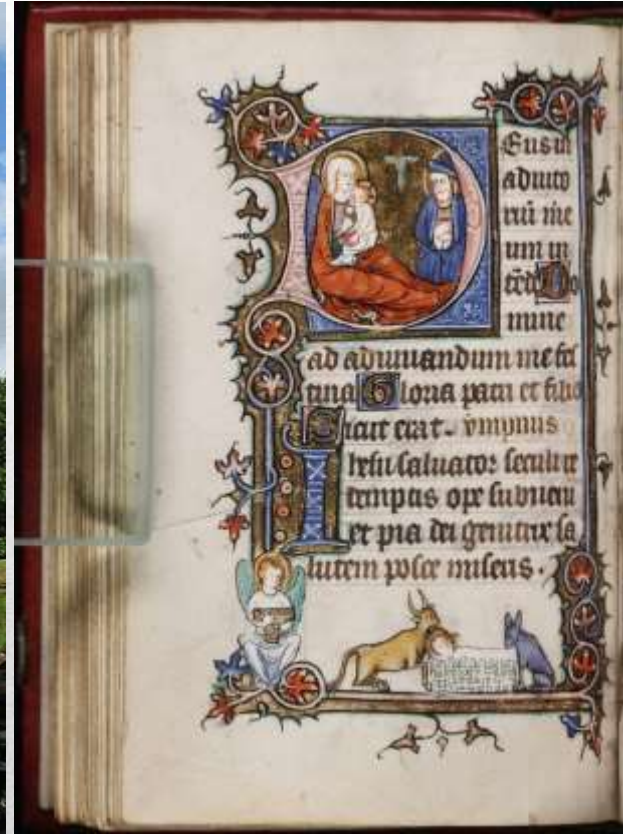 Eus in
adiuto
riū me
um in
tēde Do
mine
ad adiuuandum me fes
tina Gloria patri et filio
Sicut erat. ympnus
Ihesu saluator seculi re
demptis ope subueni
et pia dei genitrix sa
lutem posce miseris.